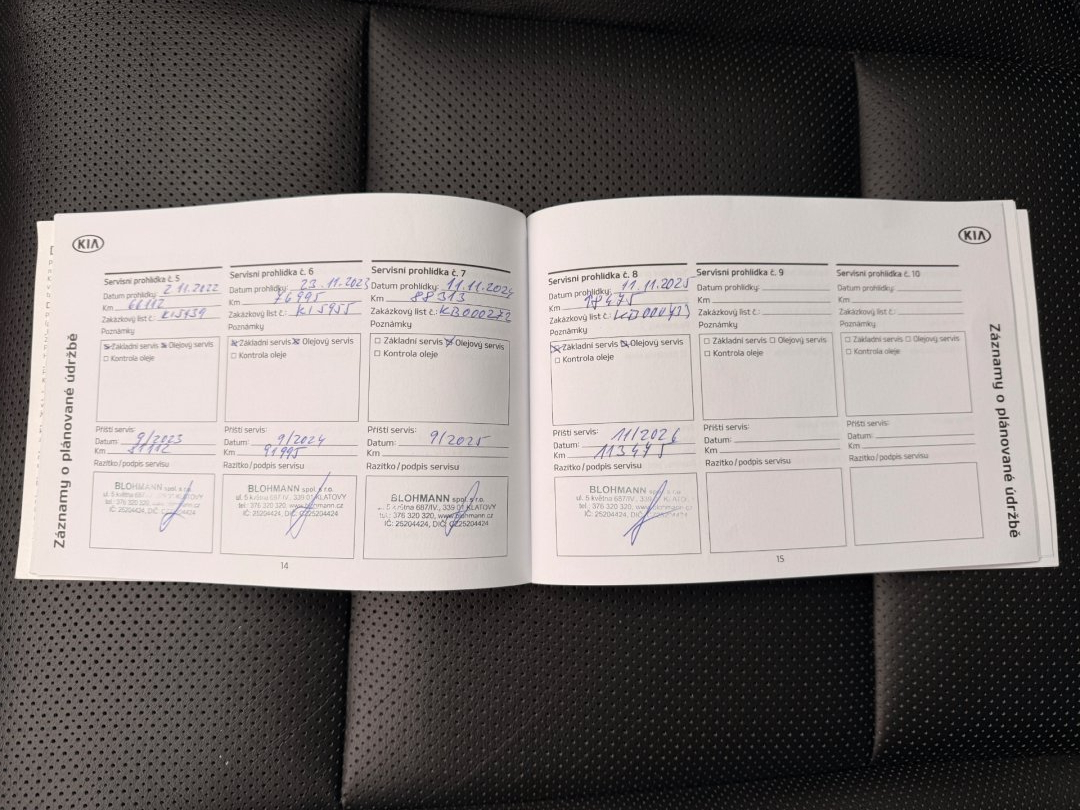 KIA
Záznamy o plánované údržbě
Servisní prohlídka č. 5
Datum prohlídky: 2.11.2022
Km 66112
Zakázkový list č.: K15939
Poznámky
Základní servis Olejový servis
Kontrola oleje
Příští servis:
Datum: 9/2023
Km 81112
Razítko/podpis servisu
BLOHMANN spol. s r.o.
ul. 5 května 687/IV, 339 01 KLATOVY
tel.: 376 320 320
IČ: 25204424, DIČ: CZ25204424
Servisní prohlídka č. 6
Datum prohlídky: 23.11.2023
Km 76995
Zakázkový list č.: K15955
Poznámky
Základní servis Olejový servis
Kontrola oleje
Příští servis:
Datum: 9/2024
Km 91995
Razítko/podpis servisu
BLOHMANN spol. s r.o.
ul. 5 května 687/IV, 339 01 KLATOVY
tel.: 376 320 320, www.blohmann.cz
IČ: 25204424, DIČ: CZ25204424
Servisní prohlídka č. 7
Datum prohlídky: 11.11.2024
Km 88313
Zakázkový list č.: KB000272
Poznámky
Základní servis Olejový servis
Kontrola oleje
Příští servis:
Datum: 9/2025
Km
Razítko/podpis servisu
BLOHMANN spol. s r.o.
května 687/IV., 339 01 KLATOVY
tel.: 376 320 320, www.blohmann.cz
IČ: 25204424, DIČ: CZ25204424
14
KIA
Servisní prohlídka č. 8
Datum prohlídky: 11.11.2025
Km 98475
Zakázkový list č.:
Poznámky
Základní servis Olejový servis
Kontrola oleje
Příští servis:
Datum: 11/2026
Km 113475
Razítko/podpis servisu
BLOHMANN spol. s r.o.
ul. 5 května 687/IV, 339 01 KLATOVY
tel.: 376 320 320
IČ: 25204424, DIČ: CZ25204424
Servisní prohlídka č. 9
Datum prohlídky:
Km
Zakázkový list č.:
Poznámky
Základní servis Olejový servis
Kontrola oleje
Příští servis:
Datum:
Km
Razítko/podpis servisu
Servisní prohlídka č. 10
Datum prohlídky:
Km
Zakázkový list č.:
Poznámky
Základní servis Olejový servis
Kontrola oleje
Příští servis:
Datum:
Km
Razítko/podpis servisu
15
Záznamy o plánované údržbě